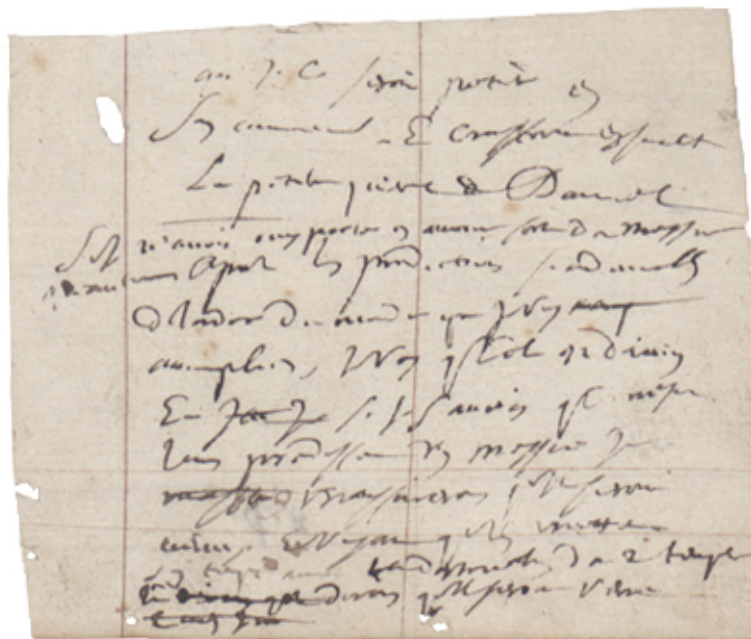 que J. C. seroit petit en
son commencement. Et croistroit ensuite
La petite pierre de Daniel
Si je n'avois ouy parler en aucune sorte du messie
neantmoins apres les predictions si admirables
de l'ordre du monde que je voy
accomplies, je voy que cela est divin
Et si je sçavois que ces mesmes
livres predissent un messie je
m'assurerois qu'il seroit
venu, et voyant qu'ils mettent
son temps avant la destruction du 2 temple
je dirois qu'il seroit venu